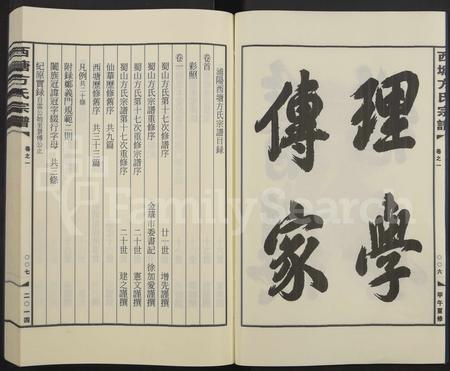 西塘方氏宗譜
卷之一
〇〇六
甲午重修
理學
傳家
浦陽西塘方氏宗譜目録
卷首
彩照
卷一
蜀山方氏第十七次修譜序 廿一世 增先謹撰
蜀山方氏宗譜重修序 金華市委書記 徐加愛謹撰
蜀山方氏第十七次重修宗譜序 二十世 憲文謹撰
蜀山方氏第十七次重修序 二十世 建之謹撰
仙華歷修舊序 共九篇
西塘歷修舊序 共三十三篇
凡例 共二十條
附録鄭義門規範二則
闔族冠諱冠字綴行字母 共二條
紀原實録
西塘方氏宗譜
卷之一
〇〇七
二〇一四
FamilySearch